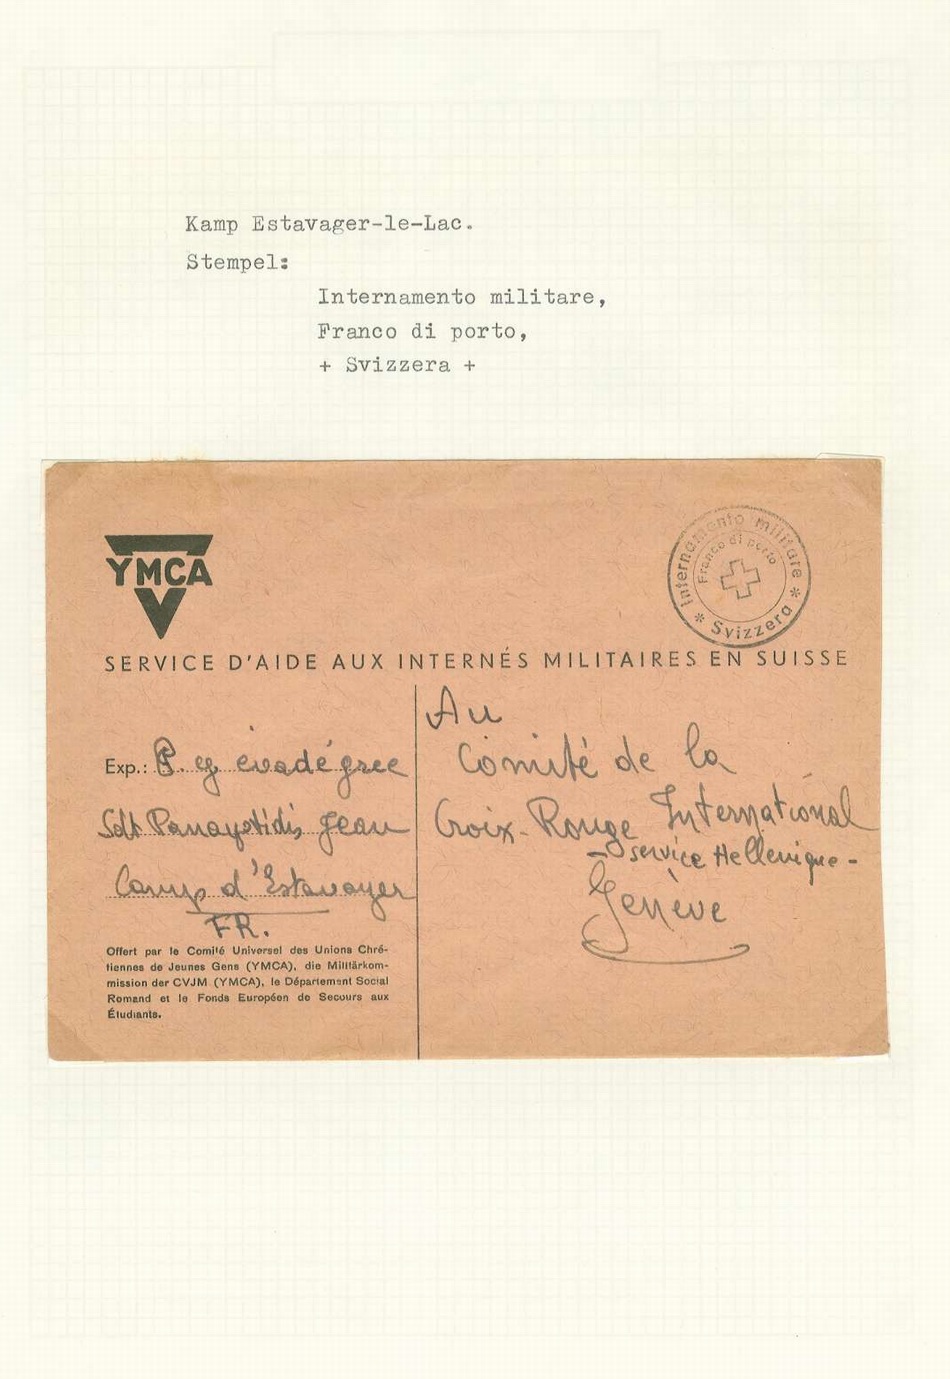 Kamp Estavager-le-Lac.
Stempel:
Internamento militare,
Franco di porto,
+ Svizzera +
YMCA
Internamento militare
Franco di porto
* Svizzera *
SERVICE D'AIDE AUX INTERNÉS MILITAIRES EN SUISSE
Exp.: P. evadé grec
Sdt Panayotidis Jean
Camp d'Estavayer
FR.
Offert par le Comité Universel des Unions Chré-
tiennes de Jeunes Gens (YMCA), die Militärkom-
mission der CVJM (YMCA), le Département Social
Romand et le Fonds Européen de Secours aux
Étudiants.
Au
Comité de la
Croix-Rouge International
- service Hellenique -
Genève